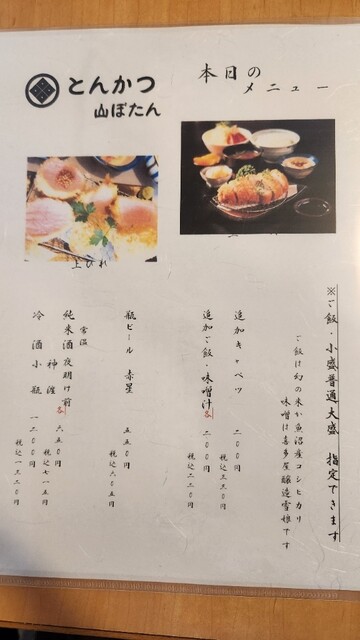 とんかつ
山ぼたん
本日の
メニュー
上ひれ
※ご飯・小盛普通大盛 指定できます
ご飯は幻の米か魚沼産コシヒカリ
味噌は喜多屋醸造雪娘です
追加キャベツ 二〇〇円
税込二二〇円
追加ご飯・味噌汁各 二〇〇円
税込二二〇円
瓶ビール 赤星 五五〇円
税込六〇五円
常温
純米酒 夜明け前 各 六五〇円
神渡 税込七一五円
冷酒小瓶 一二〇〇円
税込一三二〇円